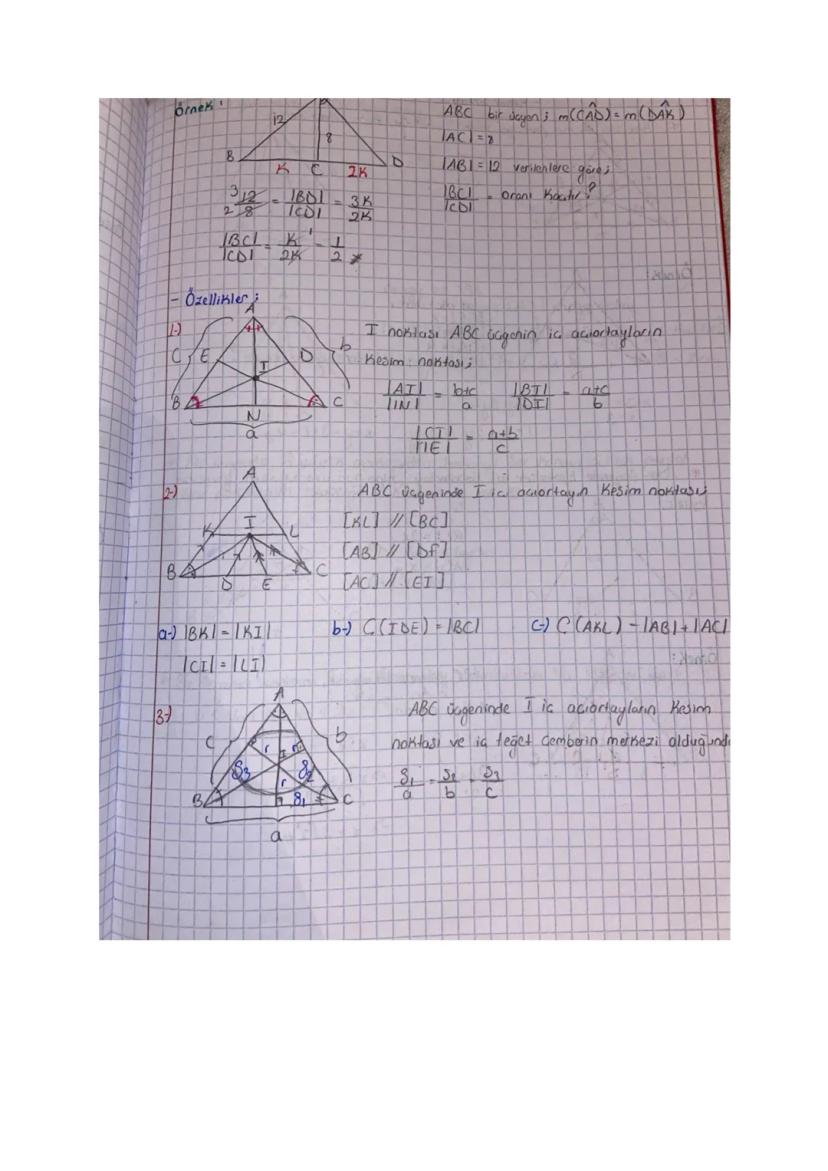 Örnek:
12
8
B
K
C
2K
D
ABC bir üçgen; m(CÂD) = m(DÂK)
|AC| = 8
|AB| = 12 verilenlere göre;
|BC|/|CD| = oranı kaçtır?
3 12/2 8 = |BD|/|CD| = 3K/2K
|BC|/|CD| = K/2K = 1/2
- Özellikler;
1-)
A
C
E
D
b
I
B
N
C
a
I noktası ABC üçgenin iç açıortayların
kesim noktası;
|AI|/|IN| = b+c/a |BI|/|DI| = a+c/b
|CI|/|IE| = a+b/c
2-)
A
K
I
L
B
D
E
C
ABC üçgeninde I iç açıortayın kesim noktası;
[KL] // [BC]
[AB] // [DF]
[AC] // [EI]
a-) |BK| = |KI| b-) Ç(IDE) = |BC| c-) Ç(AKL) - |AB| + |AC|
|CI| = |LI|
3-)
A
C
b
r
r
I
S3
S2
r
B
S1
C
a
ABC üçgeninde I iç açıortayların kesim
noktası ve iç teğet çemberin merkezi olduğunda
S1/a = S2/b = S3/c